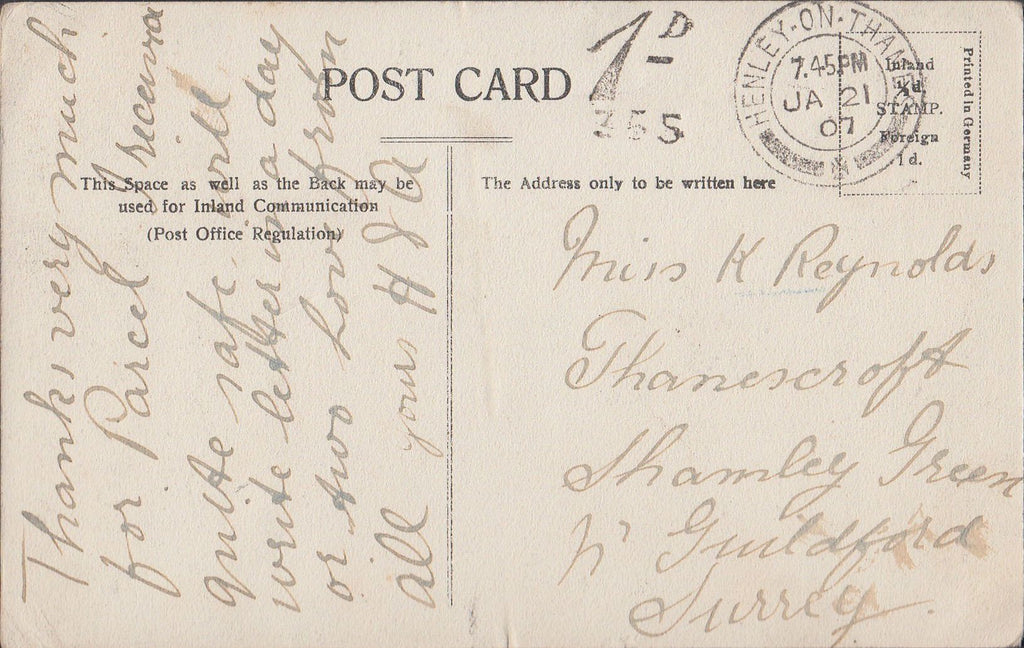 POST CARD
1D
355
HENLEY-ON-THAMES
7.45PM
JA 21
07
Inland
½d.
STAMP.
Foreign
1d.
Printed in Germany
This Space as well as the Back may be
used for Inland Communication
(Post Office Regulation)
The Address only to be written here
Thanks very much
for Parcel received
quite safe. will
write letter in a day
or two Love from
all yours H
Miss K Reynolds
Thanescroft
Shamley Green
Nr Guildford
Surrey.